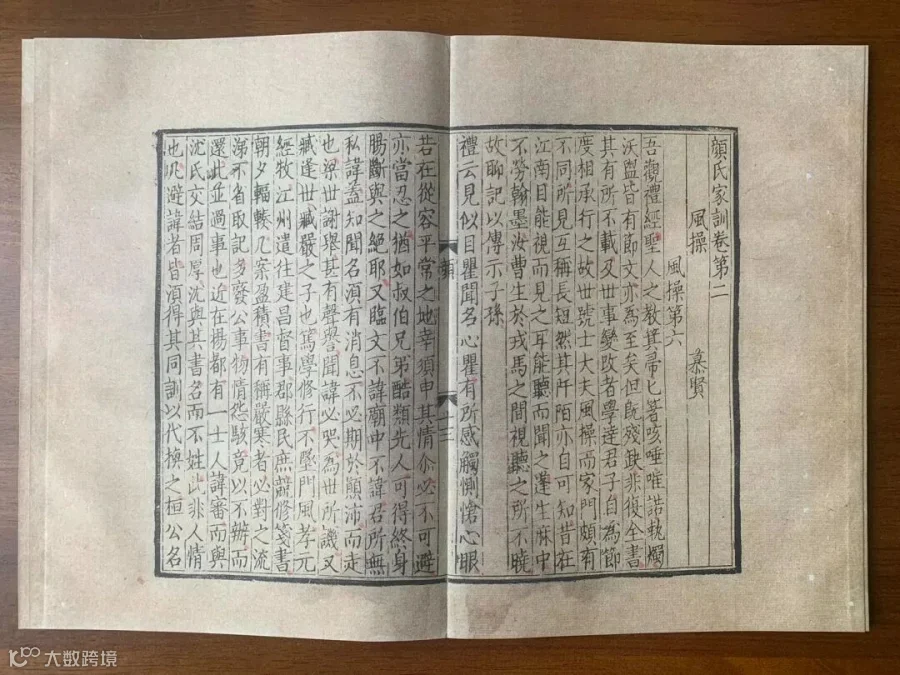 顏氏家訓卷第二
風操　慕賢
風操第六
吾觀禮經聖人之教箕帚匕箸咳唾唯諾執燭
沃盥皆有節文亦為至矣但旣殘缺非復全書
其有所不載及世事變改者學達君子自為節
度相承行之故世號士大夫風操而家門頗有
不同所見互稱長短然其阡陌亦自可知昔在
江南目能視而見之耳能聽而聞之蓬生麻中
不勞翰墨汝曹生於戎馬之間視聽之所不曉
故聊記以傳示子孫
禮云見似目瞿聞名心瞿有所感觸惻愴心眼
顏
十三
若在從容平常之地幸須申其情尒必不可避
亦當忍之猶如叔伯兄弟酷類先人可得終身
腸斷與之絕耶又臨文不諱廟中不諱君所無
私諱蓋知聞名須有消息不必期於顚沛而走
也梁世謝舉甚有聲譽聞諱必哭為世所譏又
臧逢世臧嚴之子也篤學修行不墜門風孝元
經牧江州遣往建昌督事郡縣民庶競修箋書
朝夕輻輳几案盈積書有稱嚴寒者必對之流
涕不省取記多廢公事物情怨駭竟以不辦而
還此並過事也近在揚都有一士人諱審而與
沈氏交結周厚沈與其書名而不姓此非人情
也凡避諱者皆須得其同訓以代換之桓公名
大数跨境